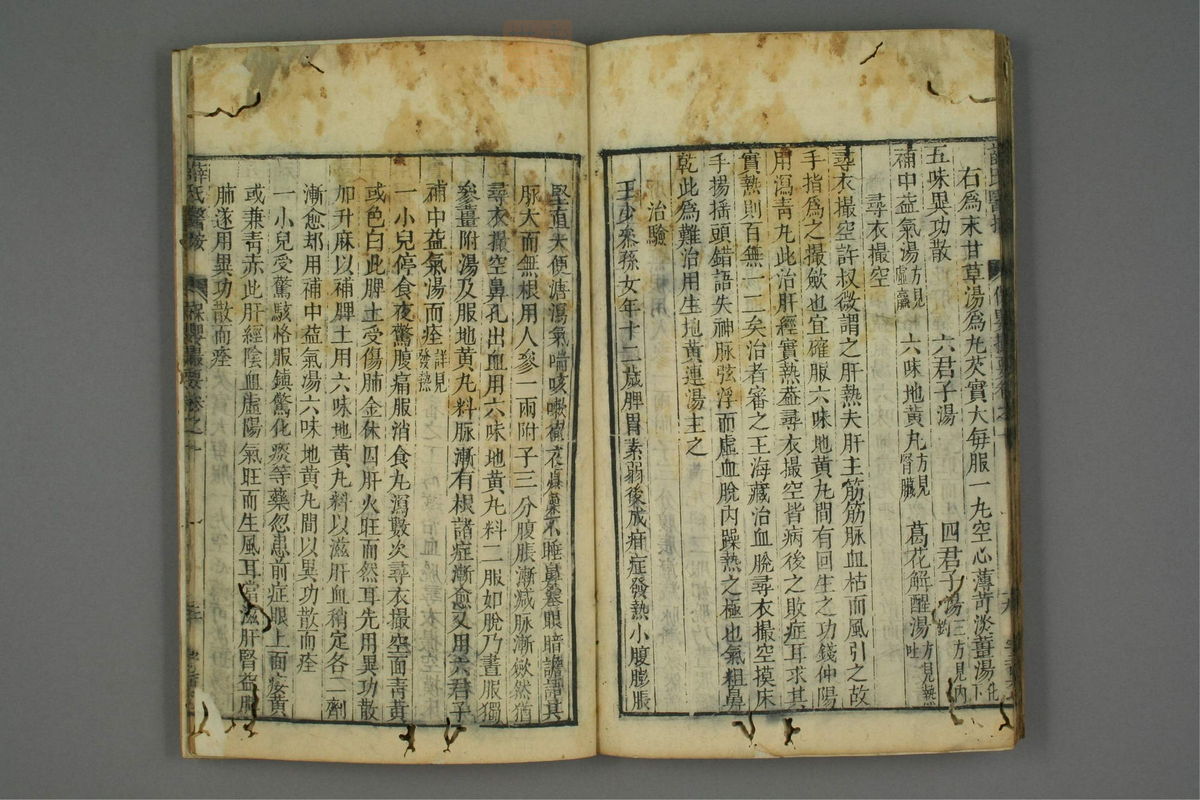 右為末甘草湯為丸芡實大每服一丸空心薄荷淡薑湯化下
五味異功散 六君子湯 四君子湯三方見內釣
補中益氣湯方見虛羸 六味地黃丸方見腎臟 葛花解醒湯方見熱吐
尋衣撮空
尋衣撮空許叔微謂之肝熱夫肝主筋筋脉血枯而風引之故
手指為之撮斂也宜確服六味地黃丸間有回生之功錢仲陽
用瀉青丸此治肝經實熱葢尋衣撮空皆病後之敗症耳求其
實熱則百無一二矣治者審之王海藏治血脫尋衣撮空摸床
手揚揺頭錯語失神脉弦浮而虛血脫內躁熱之極也氣粗鼻
乾此為難治用生地黃連湯主之
治驗
王少叅孫女年十二歲脾胃素弱後成疳症發熱小腹膨脹
堅直大便溏瀉氣喘咳嗽徹夜煩不睡鼻眼暗譫語其
脉大而無根用人參一兩附子三分腹脹漸減脉漸斂然猶
尋衣撮空鼻孔出血用六味地黃丸料二服如脫乃晝服獨
參薑附湯及服地黃丸料脉漸有根諸症漸愈又用六君子
補中益氣湯而痊詳見發熱
一小兒停食夜驚腹痛服消食丸瀉數次尋衣撮空面青黃
或色白此脾土受傷肺金休囚肝火旺而然耳先用異功散
加升麻以補脾土用六味地黃丸料以滋肝血稍定各二劑
漸愈却用補中益氣湯六味地黃丸間以異功散而痊
一小兒受驚駭恪服鎮驚化痰等藥忽患前症眼上面痿黃
或兼青赤此肝經陰血虛陽氣旺而生風耳當滋肝腎益脾
肺遂用異功散而痊
薛氏醫按 保嬰撮要卷之一